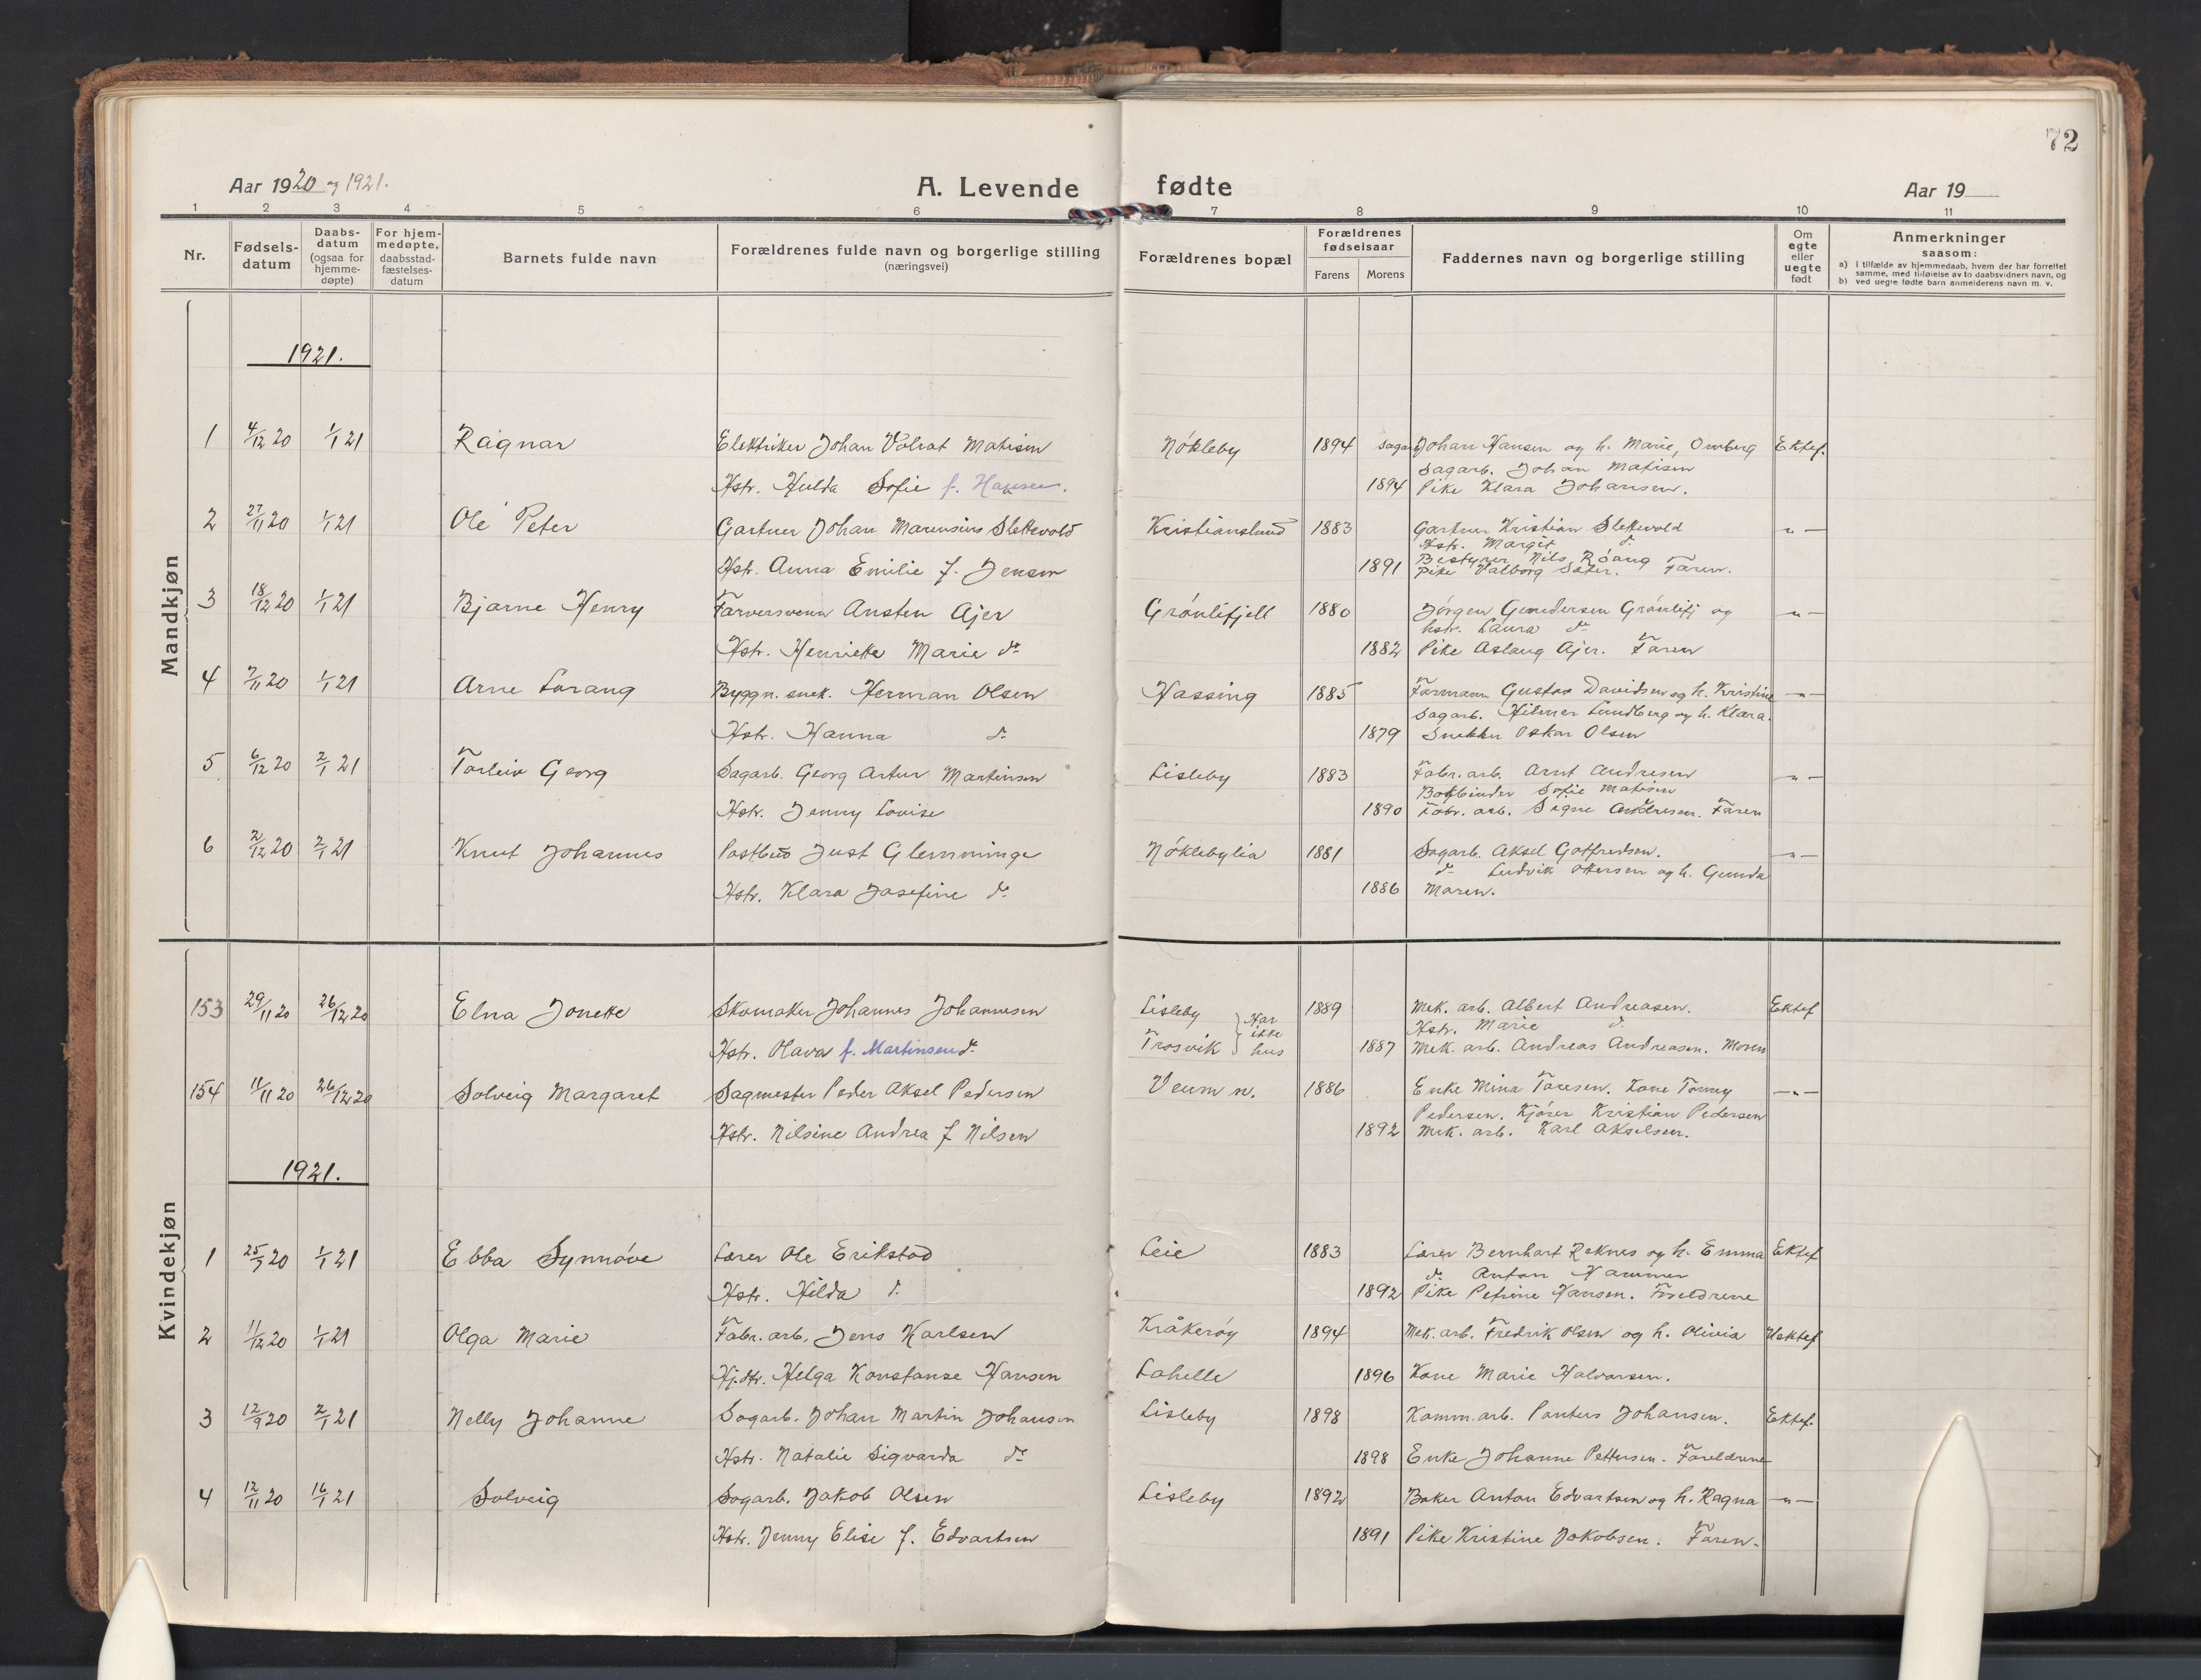 72
Aar 1920 og 1921.
A. Levende fødte
Aar 19
1 2 3 4 5 6 7 8 9 10 11
Nr.
Fødsels-
datum
Daabs-
datum
(ogsaa for
hjemme-
døpte)
For hjem-
medøpte,
daabsstad-
fæstelses-
datum
Barnets fulde navn
Forældrenes fulde navn og borgerlige stilling
(næringsvei)
Forældrenes bopæl
Forældrenes
fødselsaar
Farens Morens
Faddernes navn og borgerlige stilling
Om
egte
eller
uegte
født
Anmerkninger
saasom:
a) i tilfælde av hjemmedaab, hvem der har forrettet
samme, med tilføielse av to daabsvidners navn, og
b) ved uegte fødte barn anmelderens navn m. v.
Mandkjøn
1921.
1 4/12 20 1/1 21 Ragnar Elektriker Johan Volrat Matisen Nökleby 1894 Sagarb Johan Hansen og h. Marie, Omberg Ektef.
Sagarb. Johan Matisen
Hstr. Hulda Sofie f. Hansen. 1894 Pike Klara Johansen.
2 27/11 20 1/1 21 Ole Peter Gartner Johan Marensius Slettevold Kristianslund 1883 Gartner Kristian Slettevold — " —
Hstr. Margit do.
Bestyrer Nils Röang
Hstr. Anna Emilie f. Jensen 1891 Pike Valborg Sæter. Faren.
3 18/12 20 1/1 21 Bjarne Henry Farversvenn Ansten Ajer Grönlifjell 1880 Jörgen Gundersen Grönlifj og — " —
hstr. Laura do
Hstr. Henriette Marie do 1882 Pike Aslaug Ajer. Faren
4 7/11 20 1/1 21 Arne Lorang Byggn. snek. Herman Olsen Hassing 1885 Formann Gustav Davidsen og h. Kristine — " —
Sagarb. Hilmer Lundberg og h. Klara.
Hstr. Hanna do 1879 Snekker Oskar Olsen
5 6/12 20 2/1 21 Torleiv Georg Sagarb. Georg Artur Martinsen Lisleby 1883 Fabr. arb. Arnt Andresen — " —
Bokbinder Sofie Matisen
Hstr. Jenny Lovise 1890 Fabr. arb. Signe Andresen. Faren
6 2/12 20 2/1 21 Knut Johannes Postbud Just Glemminge Nöklebylia 1881 Sagarb. Aksel Gotfredsen. — " —
do Ludvik Ottersen og h. Gunda
Hstr. Klara Josefine do 1886 Moren.
Kvindekjøn
153 29/11 20 26/12 20 Elna Jonette Skomaker Johannes Johannesen Lisleby 1889 Mek. arb. Albert Andreasen. Ektef
Har ikke hus
Hstr. Marie do
Hstr. Olava f. Martinsen do Trosvik 1887 Mek. arb. Andreas Andreasen. Moren
154 11/11 20 26/12 20 Solveig Margaret Sagmester Peder Aksel Pedersen Veum n. 1886 Enke Mina Toresen. Kone Tomny — " —
Pedersen. Kjörer Kristian Pedersen
Hstr. Nilsine Andrea f Nilsen 1892 Mek. arb. Karl Akselsen.
1921.
1 25/7 20 1/1 21 Ebba Synnöve Lærer Ole Erikstad Leie 1883 Lærer Bernhart Reknes og h. Emma Ektef
do Anton Hammer
Hstr. Hilda do 1892 Pike Petrine Hansen. Foreldrene
2 11/12 20 1/1 21 Olga Marie Fabr. arb. Jens Karlsen Kråkeröy 1894 Mek. arb. Fredrik Olsen og h. Olivia Uektef
Hj. dtr. Helga Konstanse Hansen Lahelle 1896 Kone Marie Halvorsen.
3 12/9 20 2/1 21 Nelly Johanne Sagarb. Johan Martin Johansen Lisleby 1898 Komm. arb. Pontus Johansen. Ektef.
Hstr. Natalie Sigvarda do 1898 Enke Johanne Pettersen. Foreldrene
4 12/11 20 16/1 21 Solveig Sagarb. Jakob Olsen Lisleby 1892 Baker Anton Edvartsen og h. Ragna — " —
Hstr. Jenny Elise f. Edvartsen 1891 Pike Kristine Jakobsen. Faren.